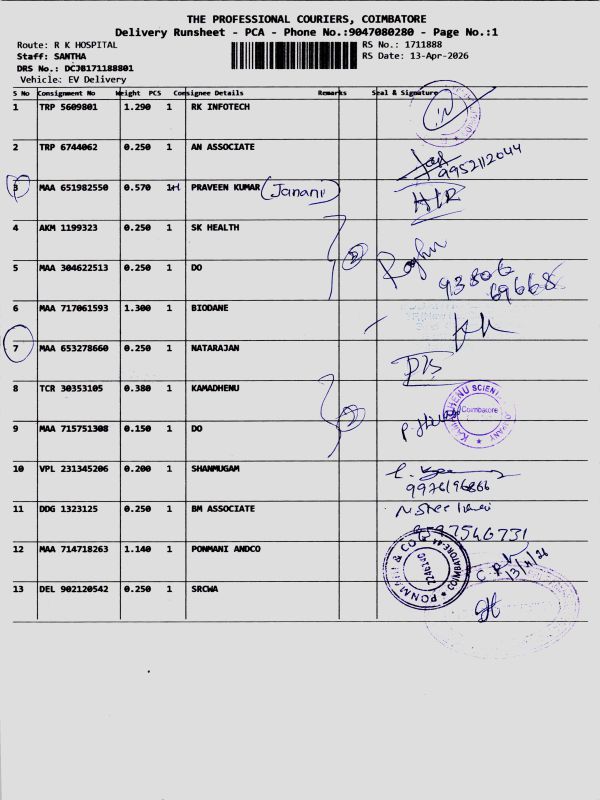 THE PROFESSIONAL COURIERS, COIMBATORE
Delivery Runsheet - PCA - Phone No.:9047080280 - Page No.:1
Route: R K HOSPITAL
RS No.: 1711888
Staff: SANTHA
RS Date: 13-Apr-2026
DRS No.: DCJB171188801
Vehicle: EV Delivery
S No Consignment No Weight PCS Consignee Details Remarks Seal & Signature
1 TRP 5609801 1.290 1 RK INFOTECH
2 TRP 6744062 0.250 1 AN ASSOCIATE
9952112044
3 MAA 651982550 0.570 1 PRAVEEN KUMAR (Janani)
4 AKM 1199323 0.250 1 SK HEALTH
2 Raghu
5 MAA 304622513 0.250 1 DO
93806
69668
6 MAA 717061593 1.300 1 BIODANE
7 MAA 653278660 0.250 1 NATARAJAN
8 TCR 30353105 0.380 1 KAMADHENU
Coimbatore
9 MAA 715751308 0.150 1 DO
10 VPL 231345206 0.200 1 SHANMUGAM
9976196866
11 DDG 1323125 0.250 1 BM ASSOCIATE
9597546731
12 MAA 714718263 1.140 1 PONMANI ANDCO
PONMANI & CO COIMBATORE-44
13/4/26
13 DEL 902120542 0.250 1 SRCWA